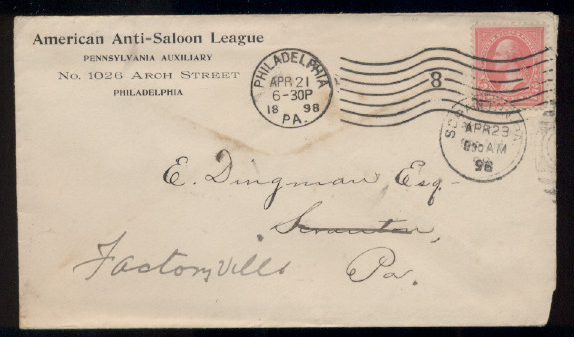 American Anti-Saloon League
PENNSYLVANIA AUXILIARY
No. 1026 ARCH STREET
PHILADELPHIA
PHILADELPHIA
APR 21
6-30P
18 98
PA.
8
APR 23
AM
98
E. Dingman Esq-
Scranton,
Factoryville
Pa.